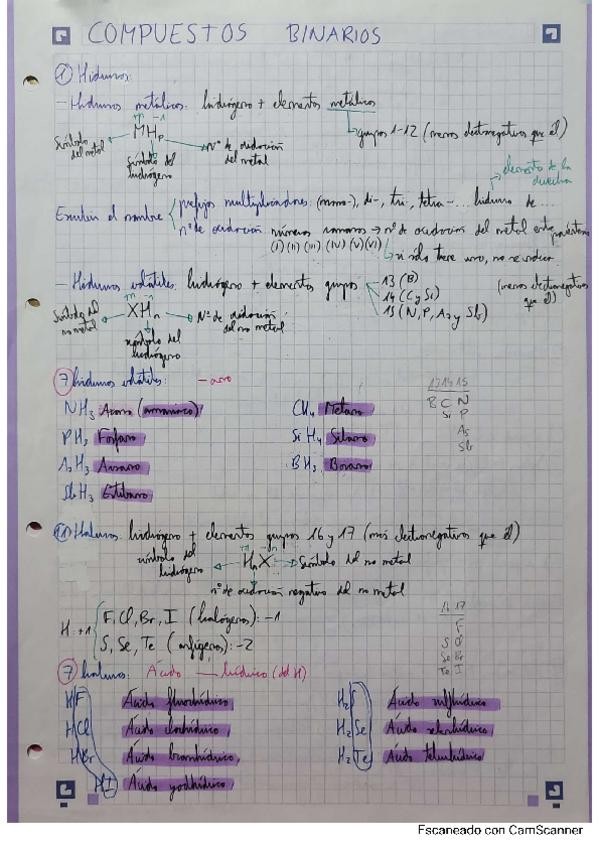 COMPUESTOS BINARIOS
① Hidruros:
- Hidruros metálicos: hidrógeno + elementos metálicos
grupos 1-12 (menos electronegativos que él)
+n -1
MHn
Símbolo del metal
Símbolo del hidrógeno
Nº de oxidación del metal
elemento de la derecha
Escribir el nombre
prefijos multiplicadores: (mono-), di-, tri-, tetra-... hidruro de...
nº de oxidación números romanos → nº de oxidación del metal entre paréntesis
(I) (II) (III) (IV) (V) (VI)
si sólo tiene uno, no se indica
- Hidruros volátiles: hidrógeno + elementos grupos
13 (B)
14 (C y Si)
15 (N, P, As y Sb)
(menos electronegativos que él)
+n -1
XHn
Símbolo del no metal
símbolo del hidrógeno
Nº de oxidación del no metal
7 hidruros volátiles: -ano
13 14 15
B C N
Si P
As
Sb
NH3 Azano (amoniaco)
CH4 Metano
PH3 Fosfano
SiH4 Silano
AsH3 Arsano
BH3 Borano
SbH3 Estibano
② Haluros: hidrógeno + elementos grupos 16 y 17 (más electronegativos que él)
+1 -n
HnX
símbolo del hidrógeno
Símbolo del no metal
nº de oxidación negativo del no metal
H: +1
F, Cl, Br, I (halógenos): -1
S, Se, Te (anfígenos): -2
16 17
F
S Cl
Se Br
Te I
7 haluros: Ácido ___hídrico (del H)
HF Ácido fluorhídrico
H2S Ácido sulfhídrico
HCl Ácido clorhídrico
H2Se Ácido selenhídrico
HBr Ácido bromhídrico
H2Te Ácido telurhídrico
HI Ácido yodhídrico
Escaneado con CamScanner